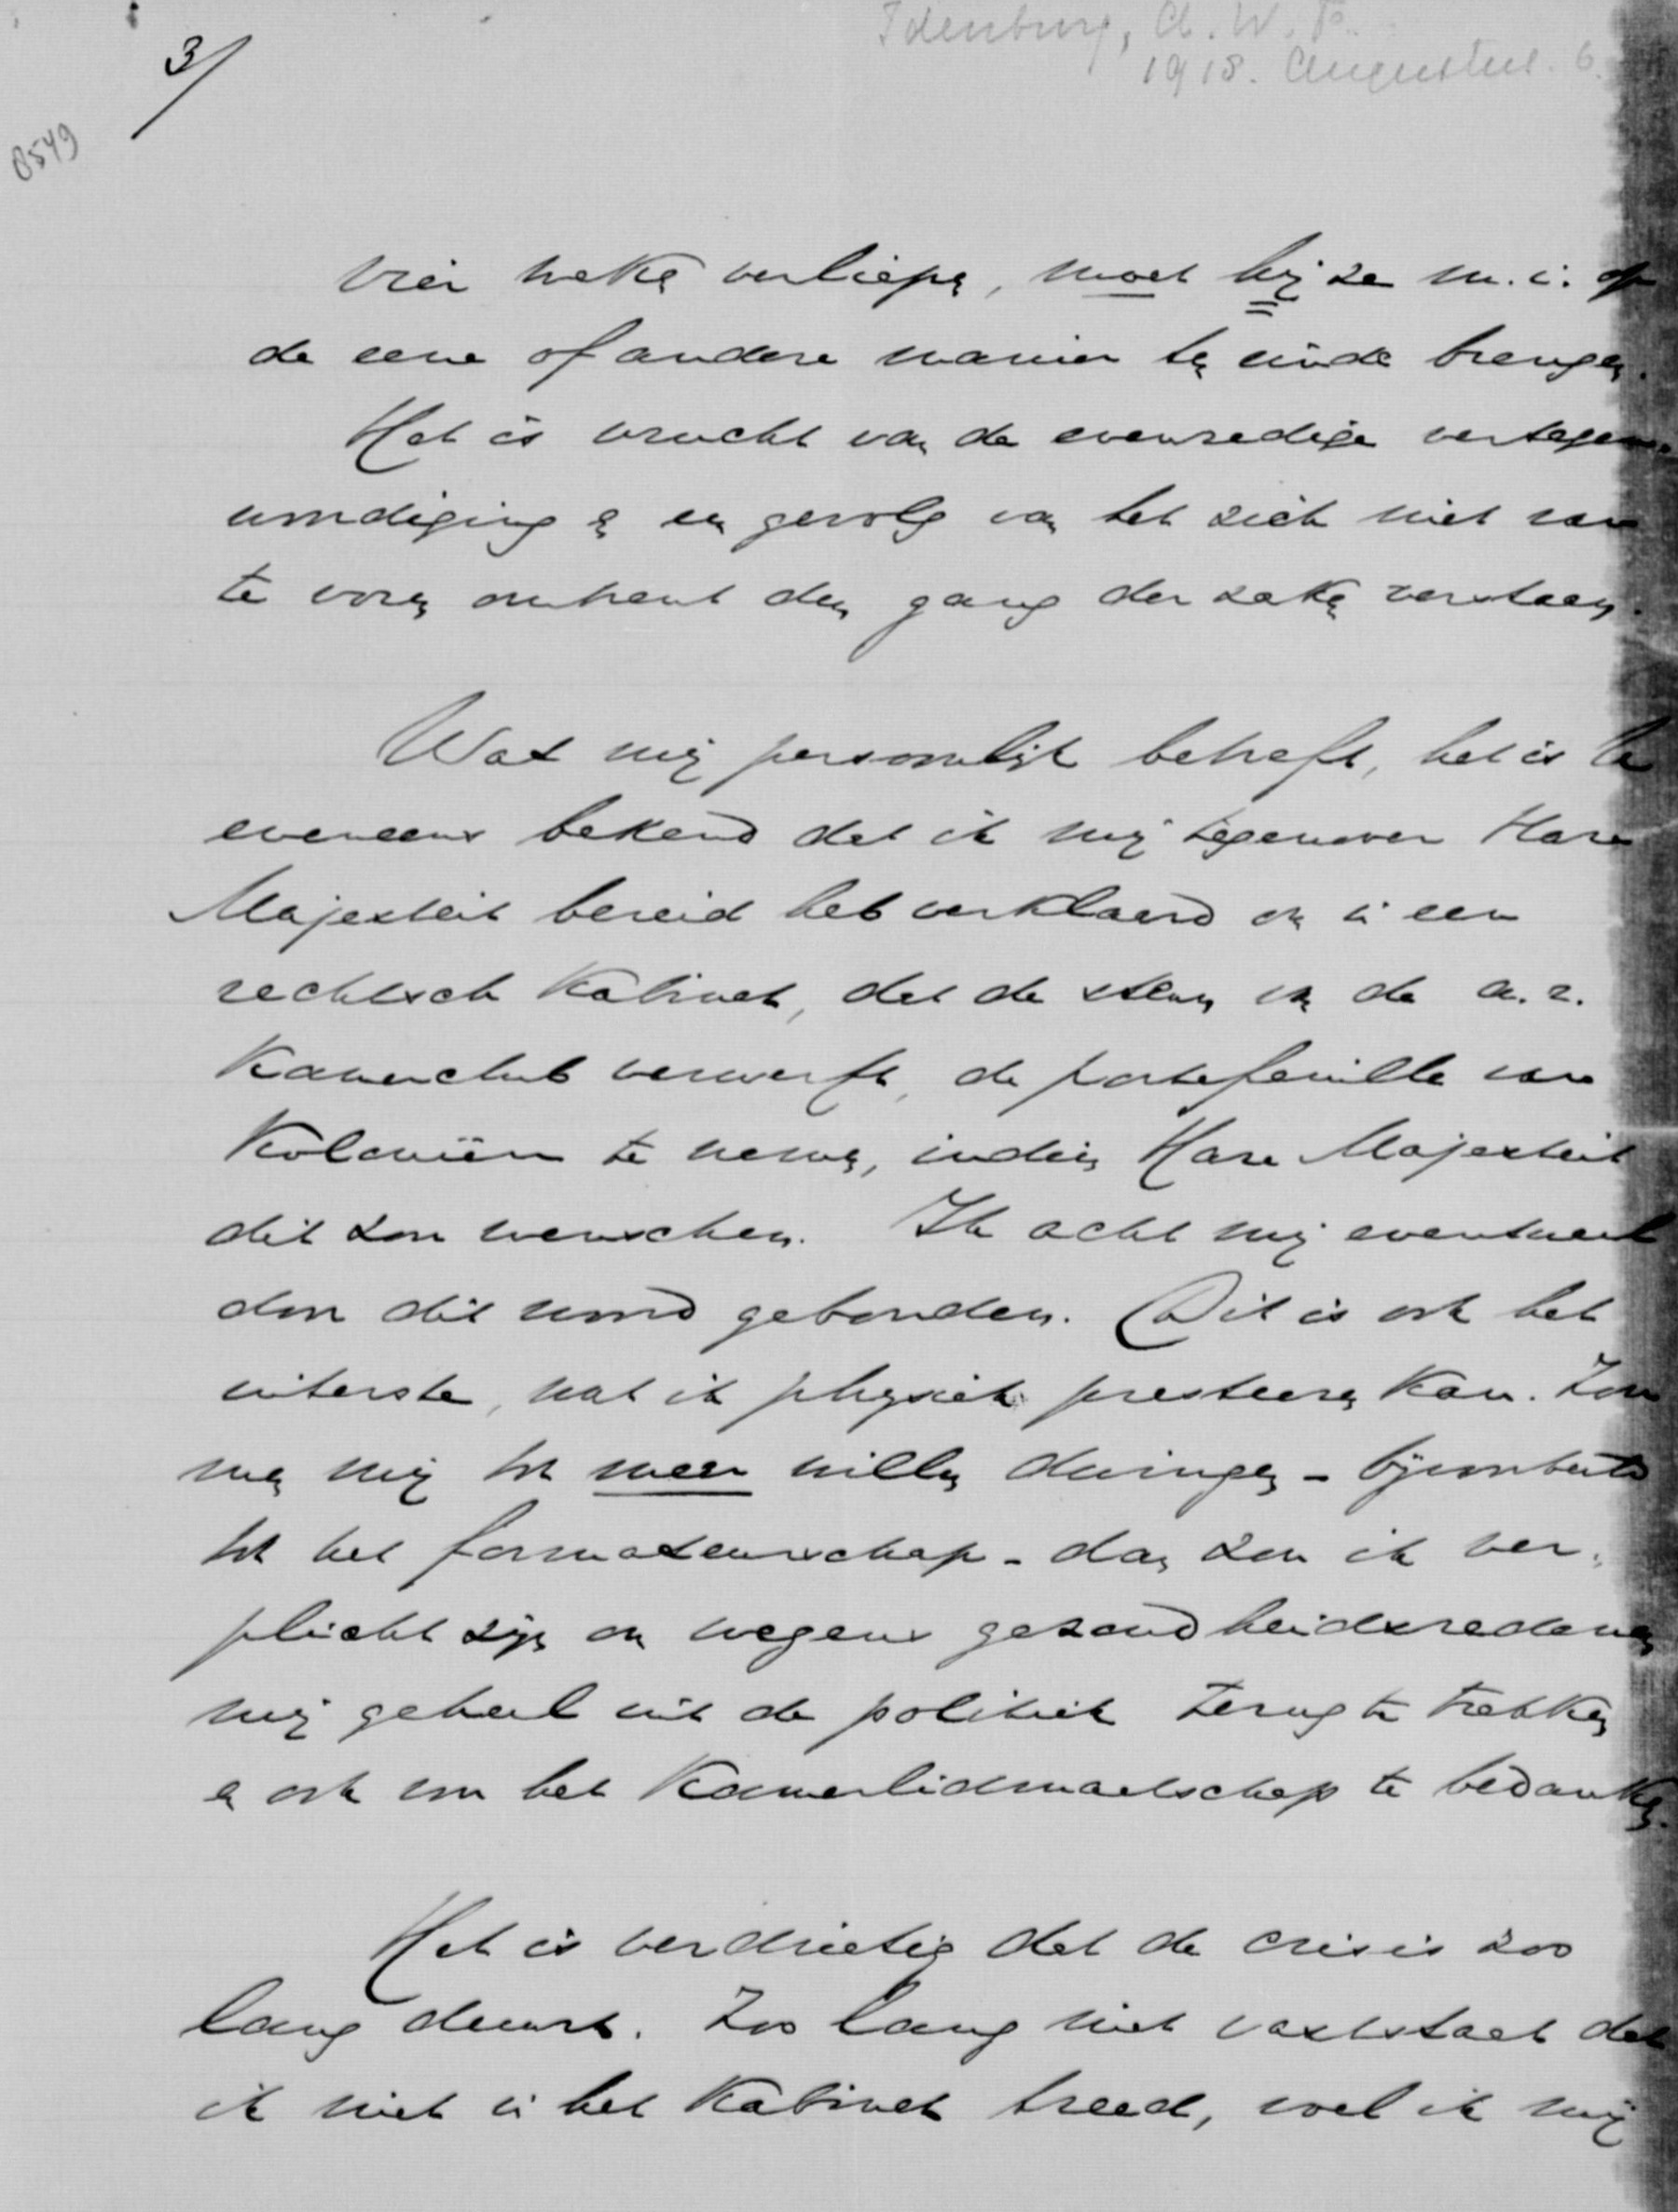 Idenburg, A.W.F.
1918. Augustus. 6.
3/
8549
vier weken verliepen, moet hij ze m.i. op
de eene of andere manier ten einde brengen.
Het is vrucht van de evenredige vertegen-
woordiging en een gevolg van het zich niet van
te voren omtrent den gang der zaken verstaan.
Wat mij persoonlijk betreft, het is
eveneens bekend dat ik mij tegenover Hare
Majesteit bereid heb verklaard om in een
rechtsch Kabinet, dat de steun van de a.r.
Kamerclub verwerft, de portefeuille van
Koloniën te nemen, indien Hare Majesteit
dit zou wenschen. Ik acht mij eventueel
door dit woord gebonden. Dit is ook het
uiterste, wat ik physiek presteeren kan. Zou
men mij tot meer willen dwingen - bijvoorbeeld
tot het formateurschap - dan zou ik ver-
plicht zijn om wegens gezondheidsredenen
mij geheel uit de politiek terug te trekken
en ook om het Kamerlidmaatschap te bedanken.
Het is verdrietig dat de crisis zoo
lang duurt. Zoo lang niet vaststaat dat
ik niet in het Kabinet treed, voel ik mij